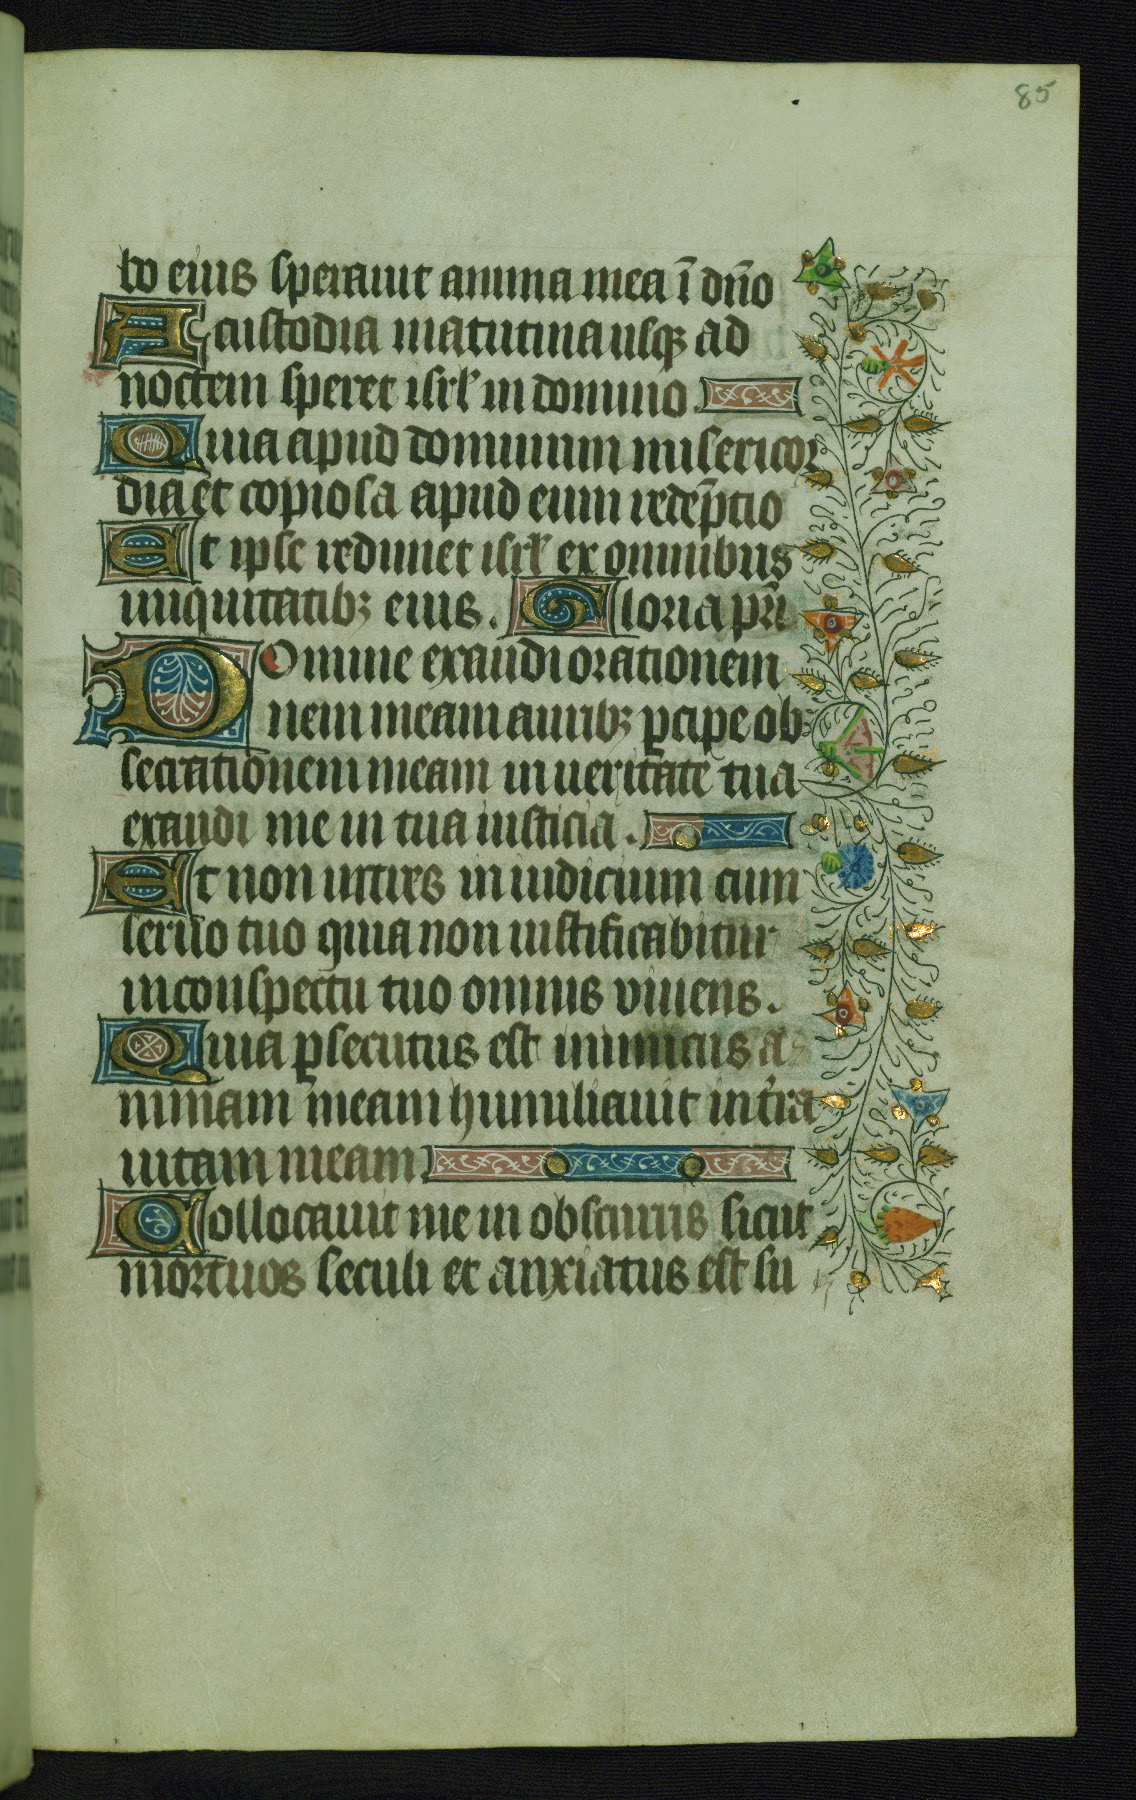 85
bo eius sperauit anima mea ī dn̄o
A custodia matutina usqꝫ ad
noctem speret isrl̄ in domino.
Quia apud dominum misericor
dia et copiosa apud eum redēptio
Et ipse redimet isrl̄ ex omnibus
iniquitatibꝫ eius. Gloria pr̄i
Domine exaudi orationem
nem meam auribꝫ ꝑcipe ob
secrationem meam in ueritate tua
exaudi me in tua iusticia.
Et non intres in iudicium cum
seruo tuo quia non iustificabitur
in conspectu tuo omnis viuens.
Quia ꝑsecutus est inimicus a
nimam meam humiliauit in t̄ra
uitam meam.
Collocauit me in obscuris sicut
mortuos seculi et anxiatus est su